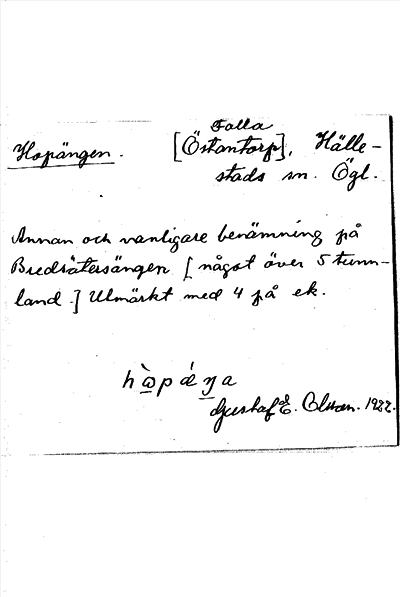 Falla
Hopängen. [Östantorp], Hälle-
stads sn. Ögl.
Annan och vanligare benämning på
Bredsätersängen [något över 5 tunn-
land.] Utmärkt med 4 på ek.
Gustaf E. Olsson. 1922.